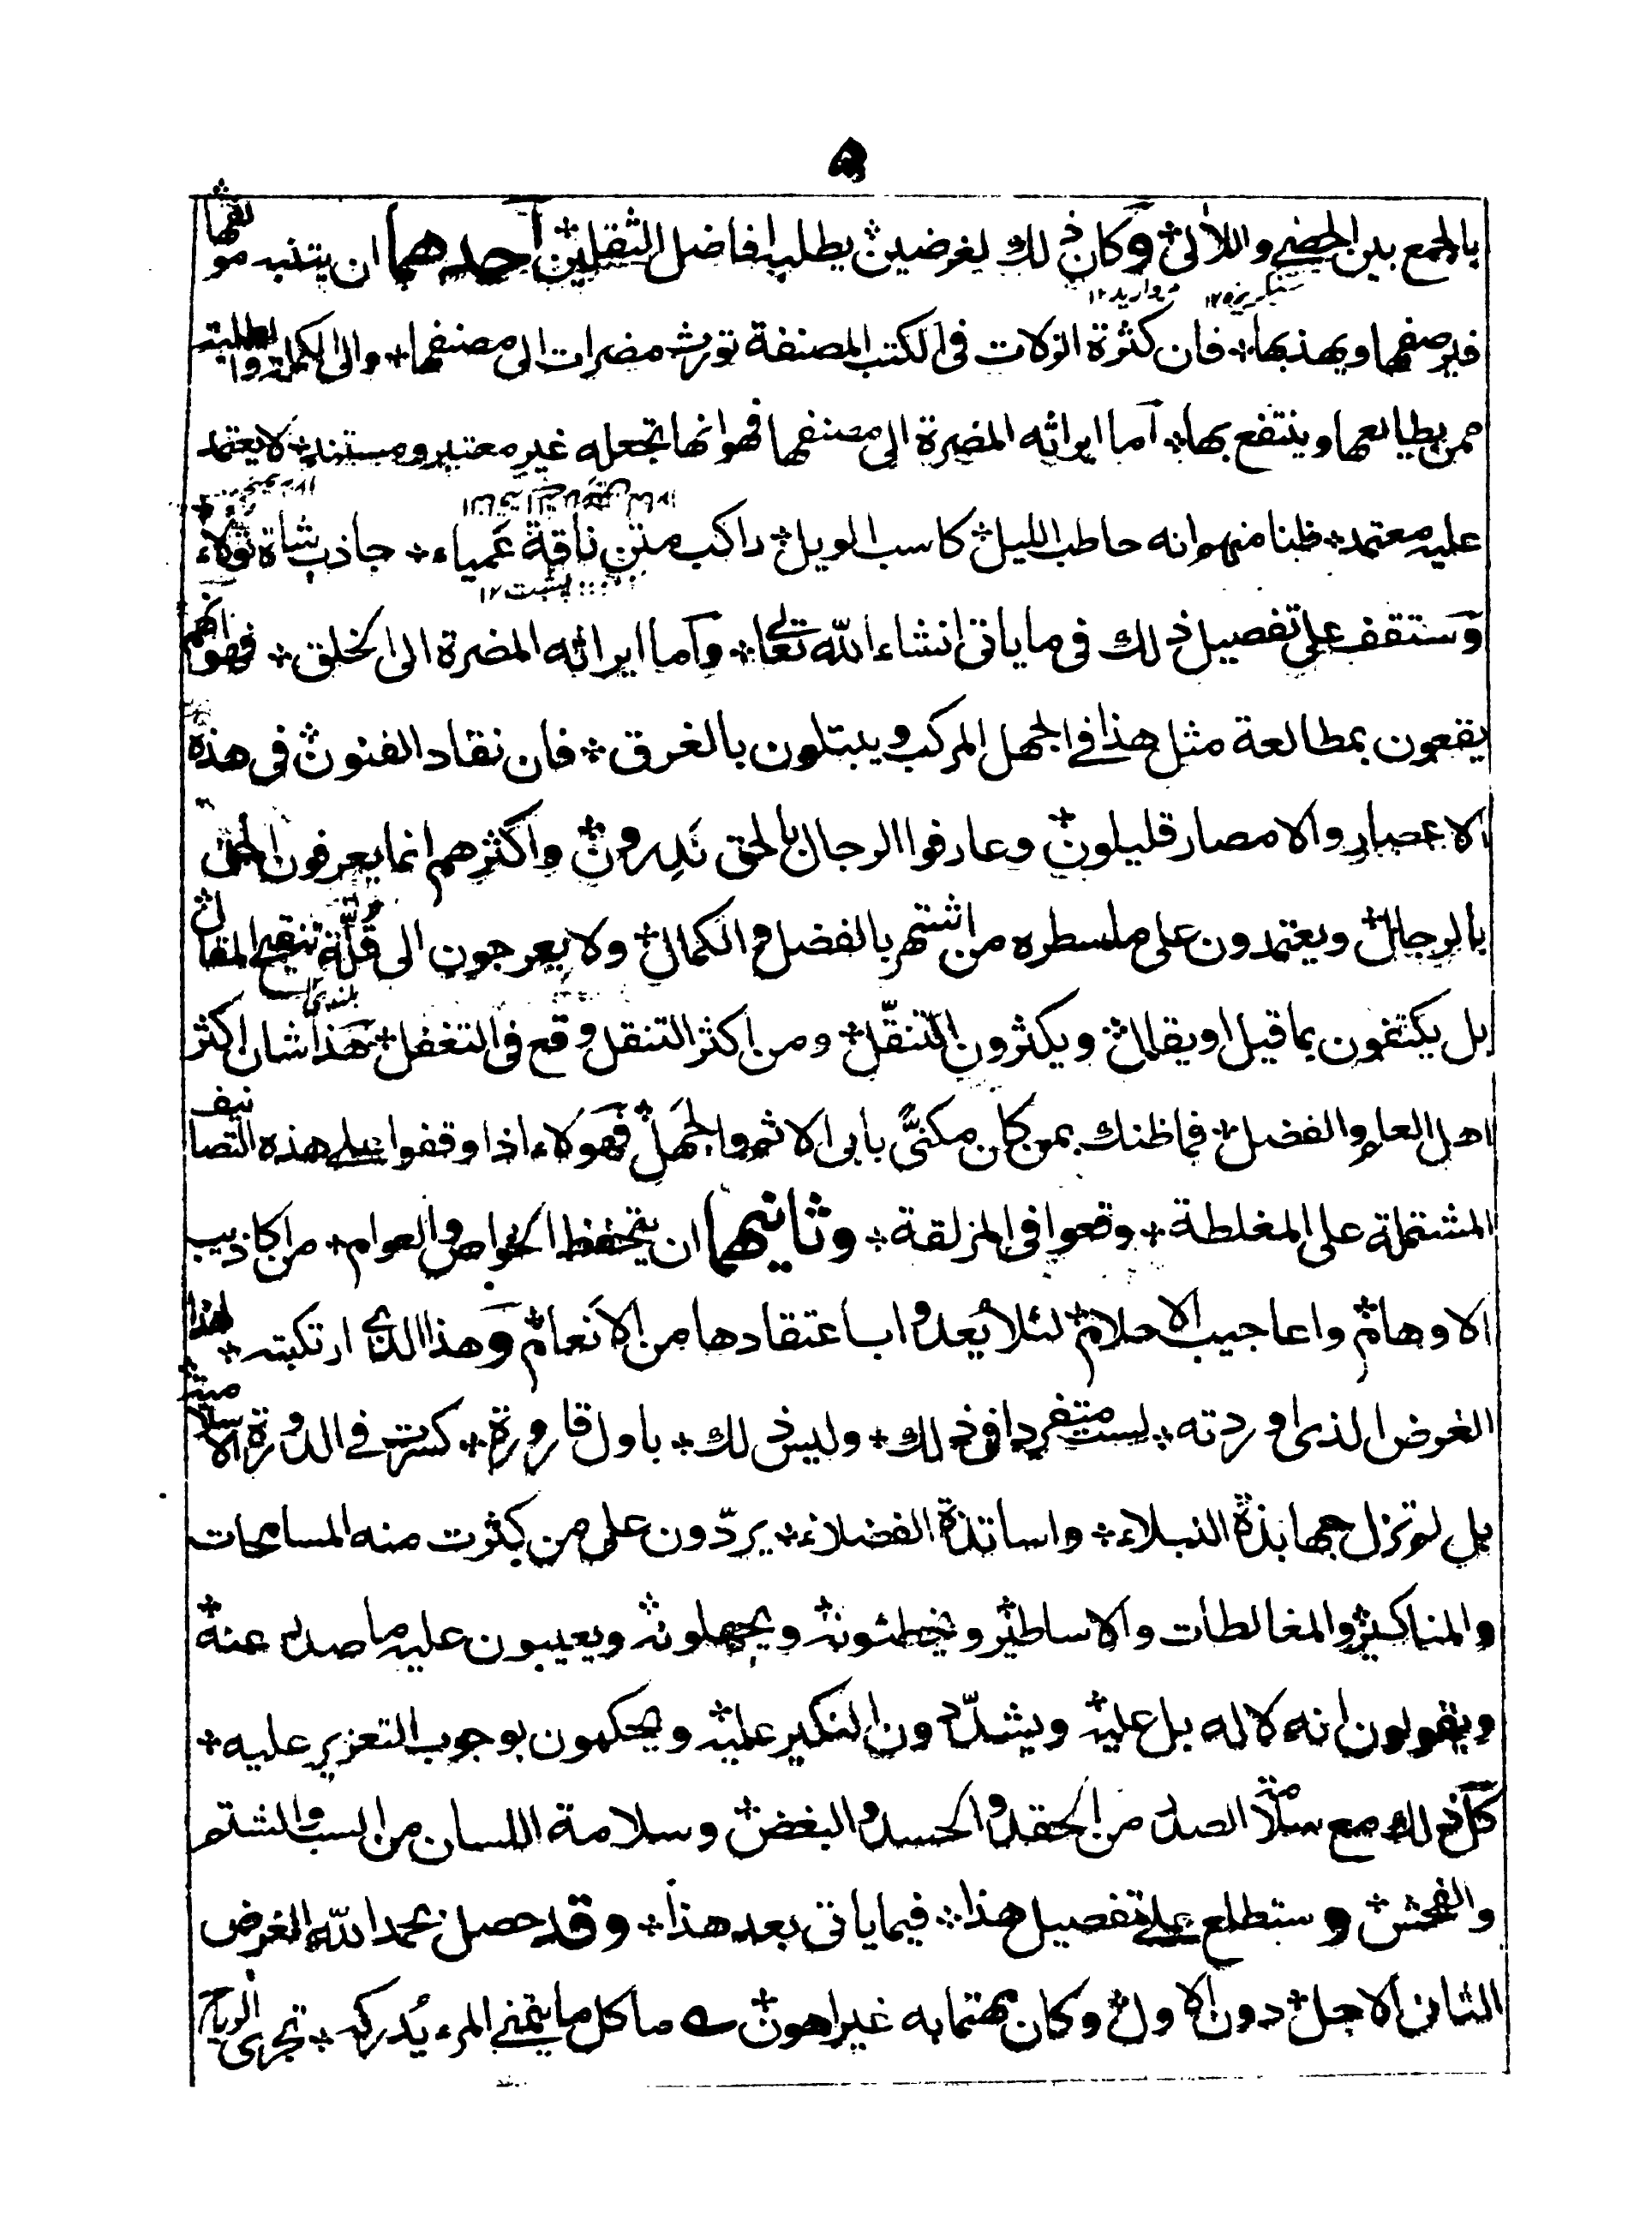 ۵
بالجمع بين الحضے واللألی* وكان ذلك لغرضين* يطلبهما فاضل الثقلين* احدهما ان يتنبه مؤلفها*
سنگريزه ۱۲ مرواريد ۱۲
فيرصفها ويهذبها* فان كثرة الزلات فی الكتب المصنفة تورث مضرات الی مصنفها* والی الكملة والطلبة
ممن يطالعها وينتفع بها* آما ايراثه المضرة الی مصنفها فهو انها تجعله غير معتبر ومستند* لا يعتمد
عليه معتمد* ظنا منهم انه حاطب الليل* كاسب الويل* راكب متن ناقة عمياء* جاذب شاة ثولاء*
پشت ۱۲
وستقف علی تفصيل ذلك فی ما ياتی انشاء الله تعالے* وآما ايراثه المضرة الی الخلق* فهو انهم
يقعون بمطالعة مثل هذا فے الجهل المركب ويبتلون بالغرق* فان نقاد الفنون* فی هذه
الاعصار والامصار قليلون* وعارفوا الرجال بالحق نَدِرون* واكثرهم انما يعرفون الحق
بالرجال* ويعتمدون علی ما سطره من اشتهر بالفضل والكمال* ولا يعرجون الی قُلّة تنقيح المقال*
بلندی
بل يكتفون بما قيل او يقال* ويكثرون التنقّل* ومن اكثر التنقل وقع فی التغفل* هذا شان اكثر
اهل العلم والفضل* فما ظنك بمن كان مكنیًّ بابی الاثم والجهل* فهولاء اذا وقفوا علے هذه التصانيف
المشتملة علی المغلطة* وقعوا فی المزلقة* وثانيهما ان يتحفظ الخواص والعوام* من اكاذيب
الاوهام* واعاجيب الاحلام* لئلا يُعدوا باعتقادها من الانعام* وهذا الذی ارتكبته* لهذا
الغرض الذی اوردته* لست متفردا فی ذلك* وليس ذلك* باول قارورة* كسرت فے الدورة الاسلامية*
بل لم تزل جهابذة النبلاء* واساتذة الفضلاء* يردّون علی من كثرت منه المسامحات
والمناكير* والمغالطات والاساطير* ويخطئونه* ويجهلونه* ويعيبون عليه ما صدر عنه*
ويقولون انه لا له بل عليه* ويشدّدون النكير عليه* ويحكمون بوجوب التعزير عليه*
كل ذلك مع سلامة الصدر من الحقد والحسد والبغض* وسلامة اللسان من السب والشتم
والفحش* وستطلع علے تفصيل هذا* فيما ياتی بعد هذا* وقد حصل بحمد الله الغرض
الثانی الاجل* دون الاول* وكان مهتما به غير اهون* ے ما كل ما يتمنے المرء يُدركه* تجری الرياح